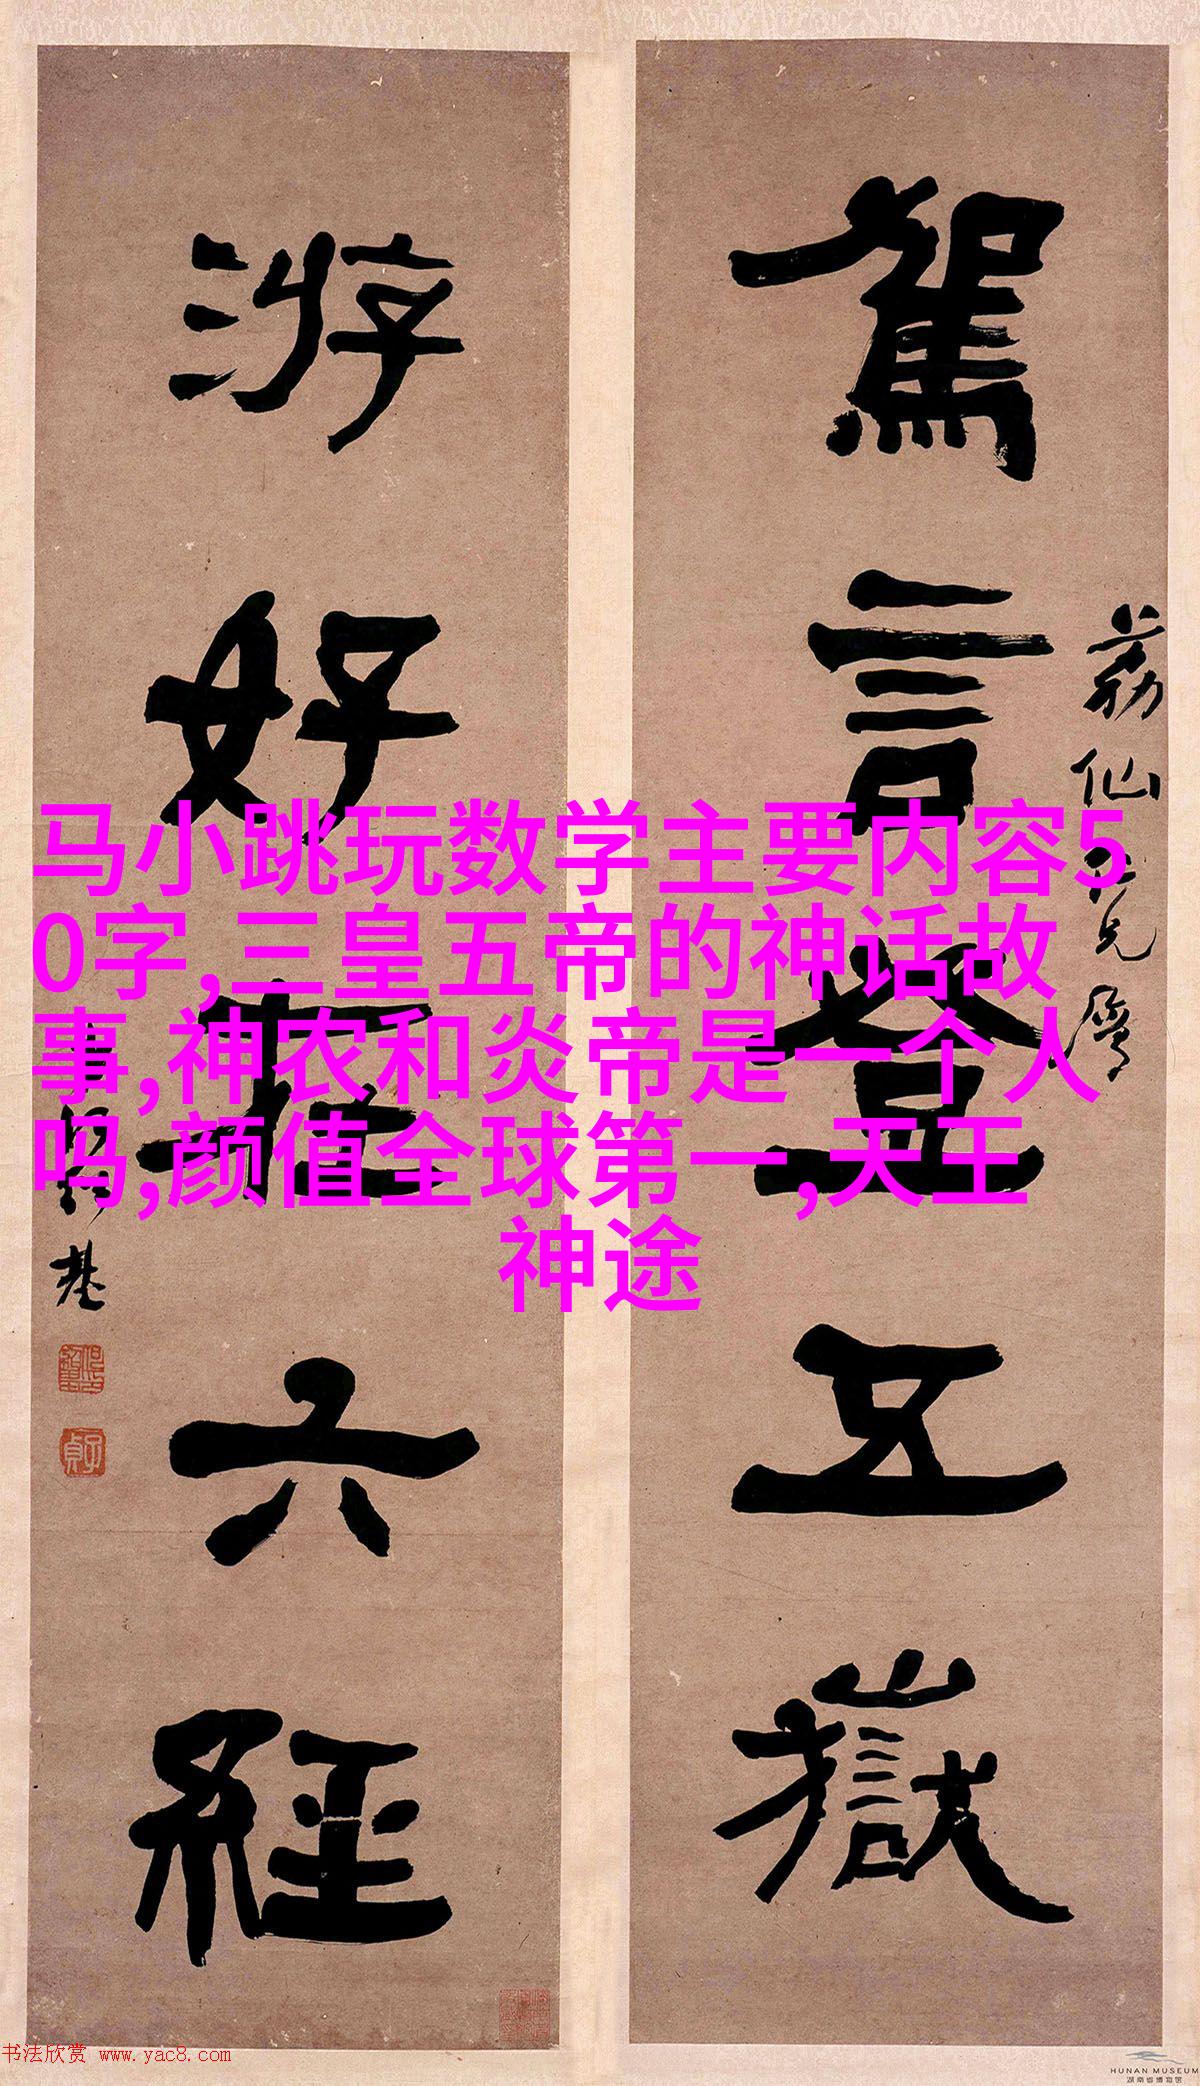 駕言登五嶽
荔仙
游好在六經
基
马小跳玩数学主要内容5
0字,三皇五帝的神话故
事,神农和炎帝是一个人
吗,颜值全球第一,天王
神途
书法欣赏 www.yac8.com
HUNAN MUSEUM
湖南省博物馆